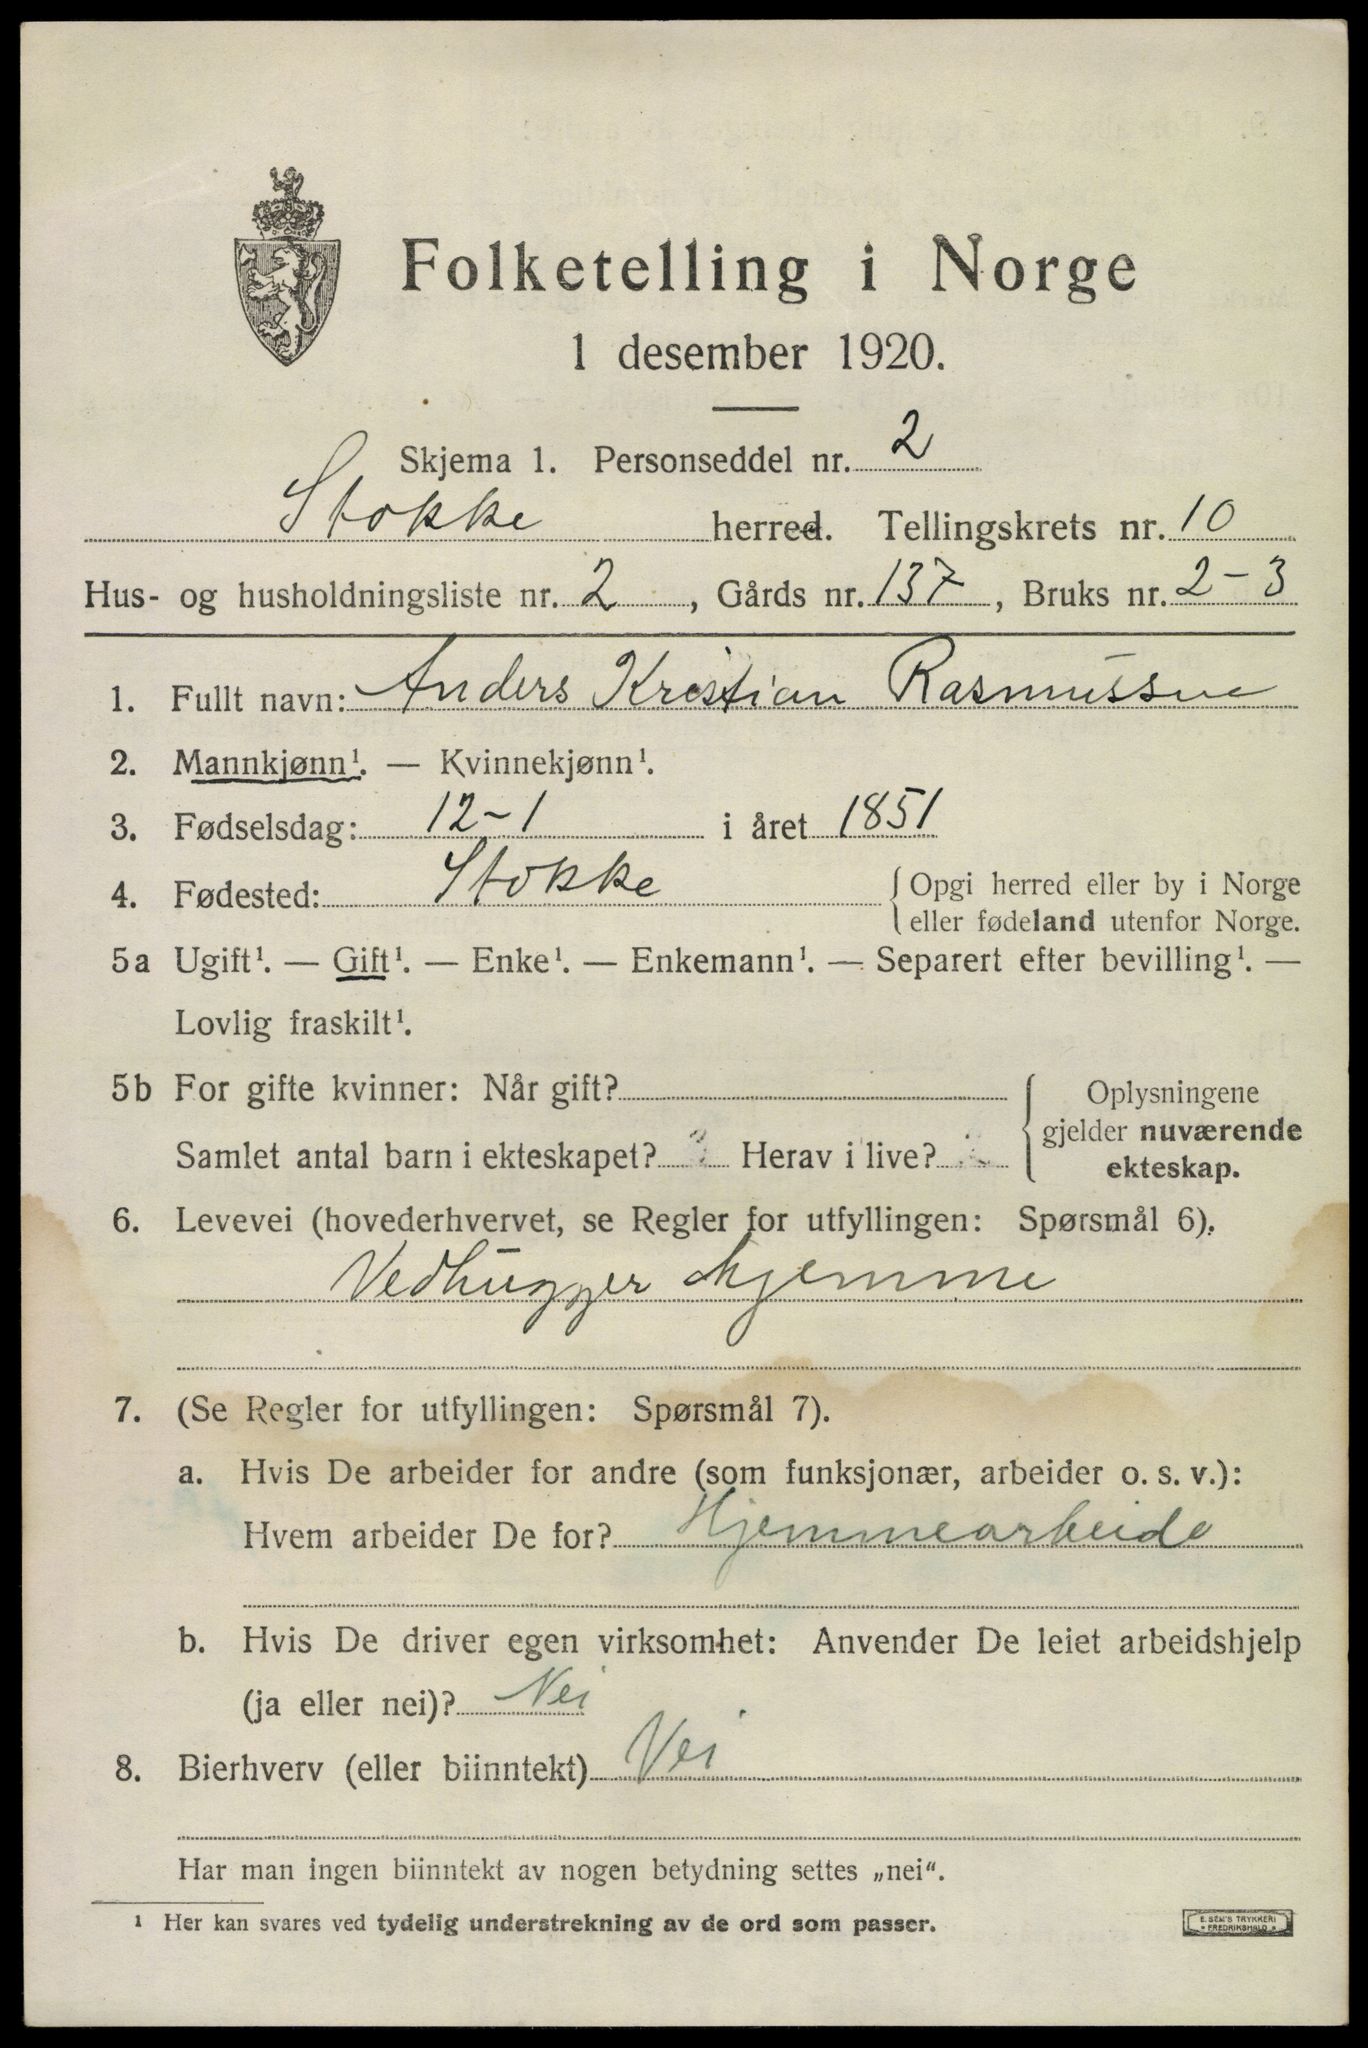 Folketelling i Norge
1 desember 1920.
Skjema 1. Personseddel nr. 2
Stokke herred. Tellingskrets nr. 10
Hus- og husholdningsliste nr. 2, Gårds nr. 137, Bruks nr. 2-3
1. Fullt navn: Anders Kristian Rasmussen
2. Mannkjønn¹. — Kvinnekjønn¹.
3. Fødselsdag: 12-1 i året 1851
4. Fødested: Stokke { Opgi herred eller by i Norge
eller fødeland utenfor Norge.
5a Ugift¹. — Gift¹. — Enke¹. — Enkemann¹. — Separert efter bevilling¹. —
Lovlig fraskilt¹.
5b For gifte kvinner: Når gift?
Samlet antal barn i ekteskapet? Herav i live?
Oplysningene
gjelder nuværende
ekteskap.
6. Levevei (hovederhvervet, se Regler for utfyllingen: Spørsmål 6).
Vedhugger hjemme
7. (Se Regler for utfyllingen: Spørsmål 7).
a. Hvis De arbeider for andre (som funksjonær, arbeider o. s. v.):
Hvem arbeider De for? Hjemmearbeide
b. Hvis De driver egen virksomhet: Anvender De leiet arbeidshjelp
(ja eller nei)? Nei
8. Bierhverv (eller biinntekt) Nei
Har man ingen biinntekt av nogen betydning settes „nei“.
¹ Her kan svares ved tydelig understrekning av de ord som passer.
E. SEM'S TRYKKERI
FREDRIKSHALD